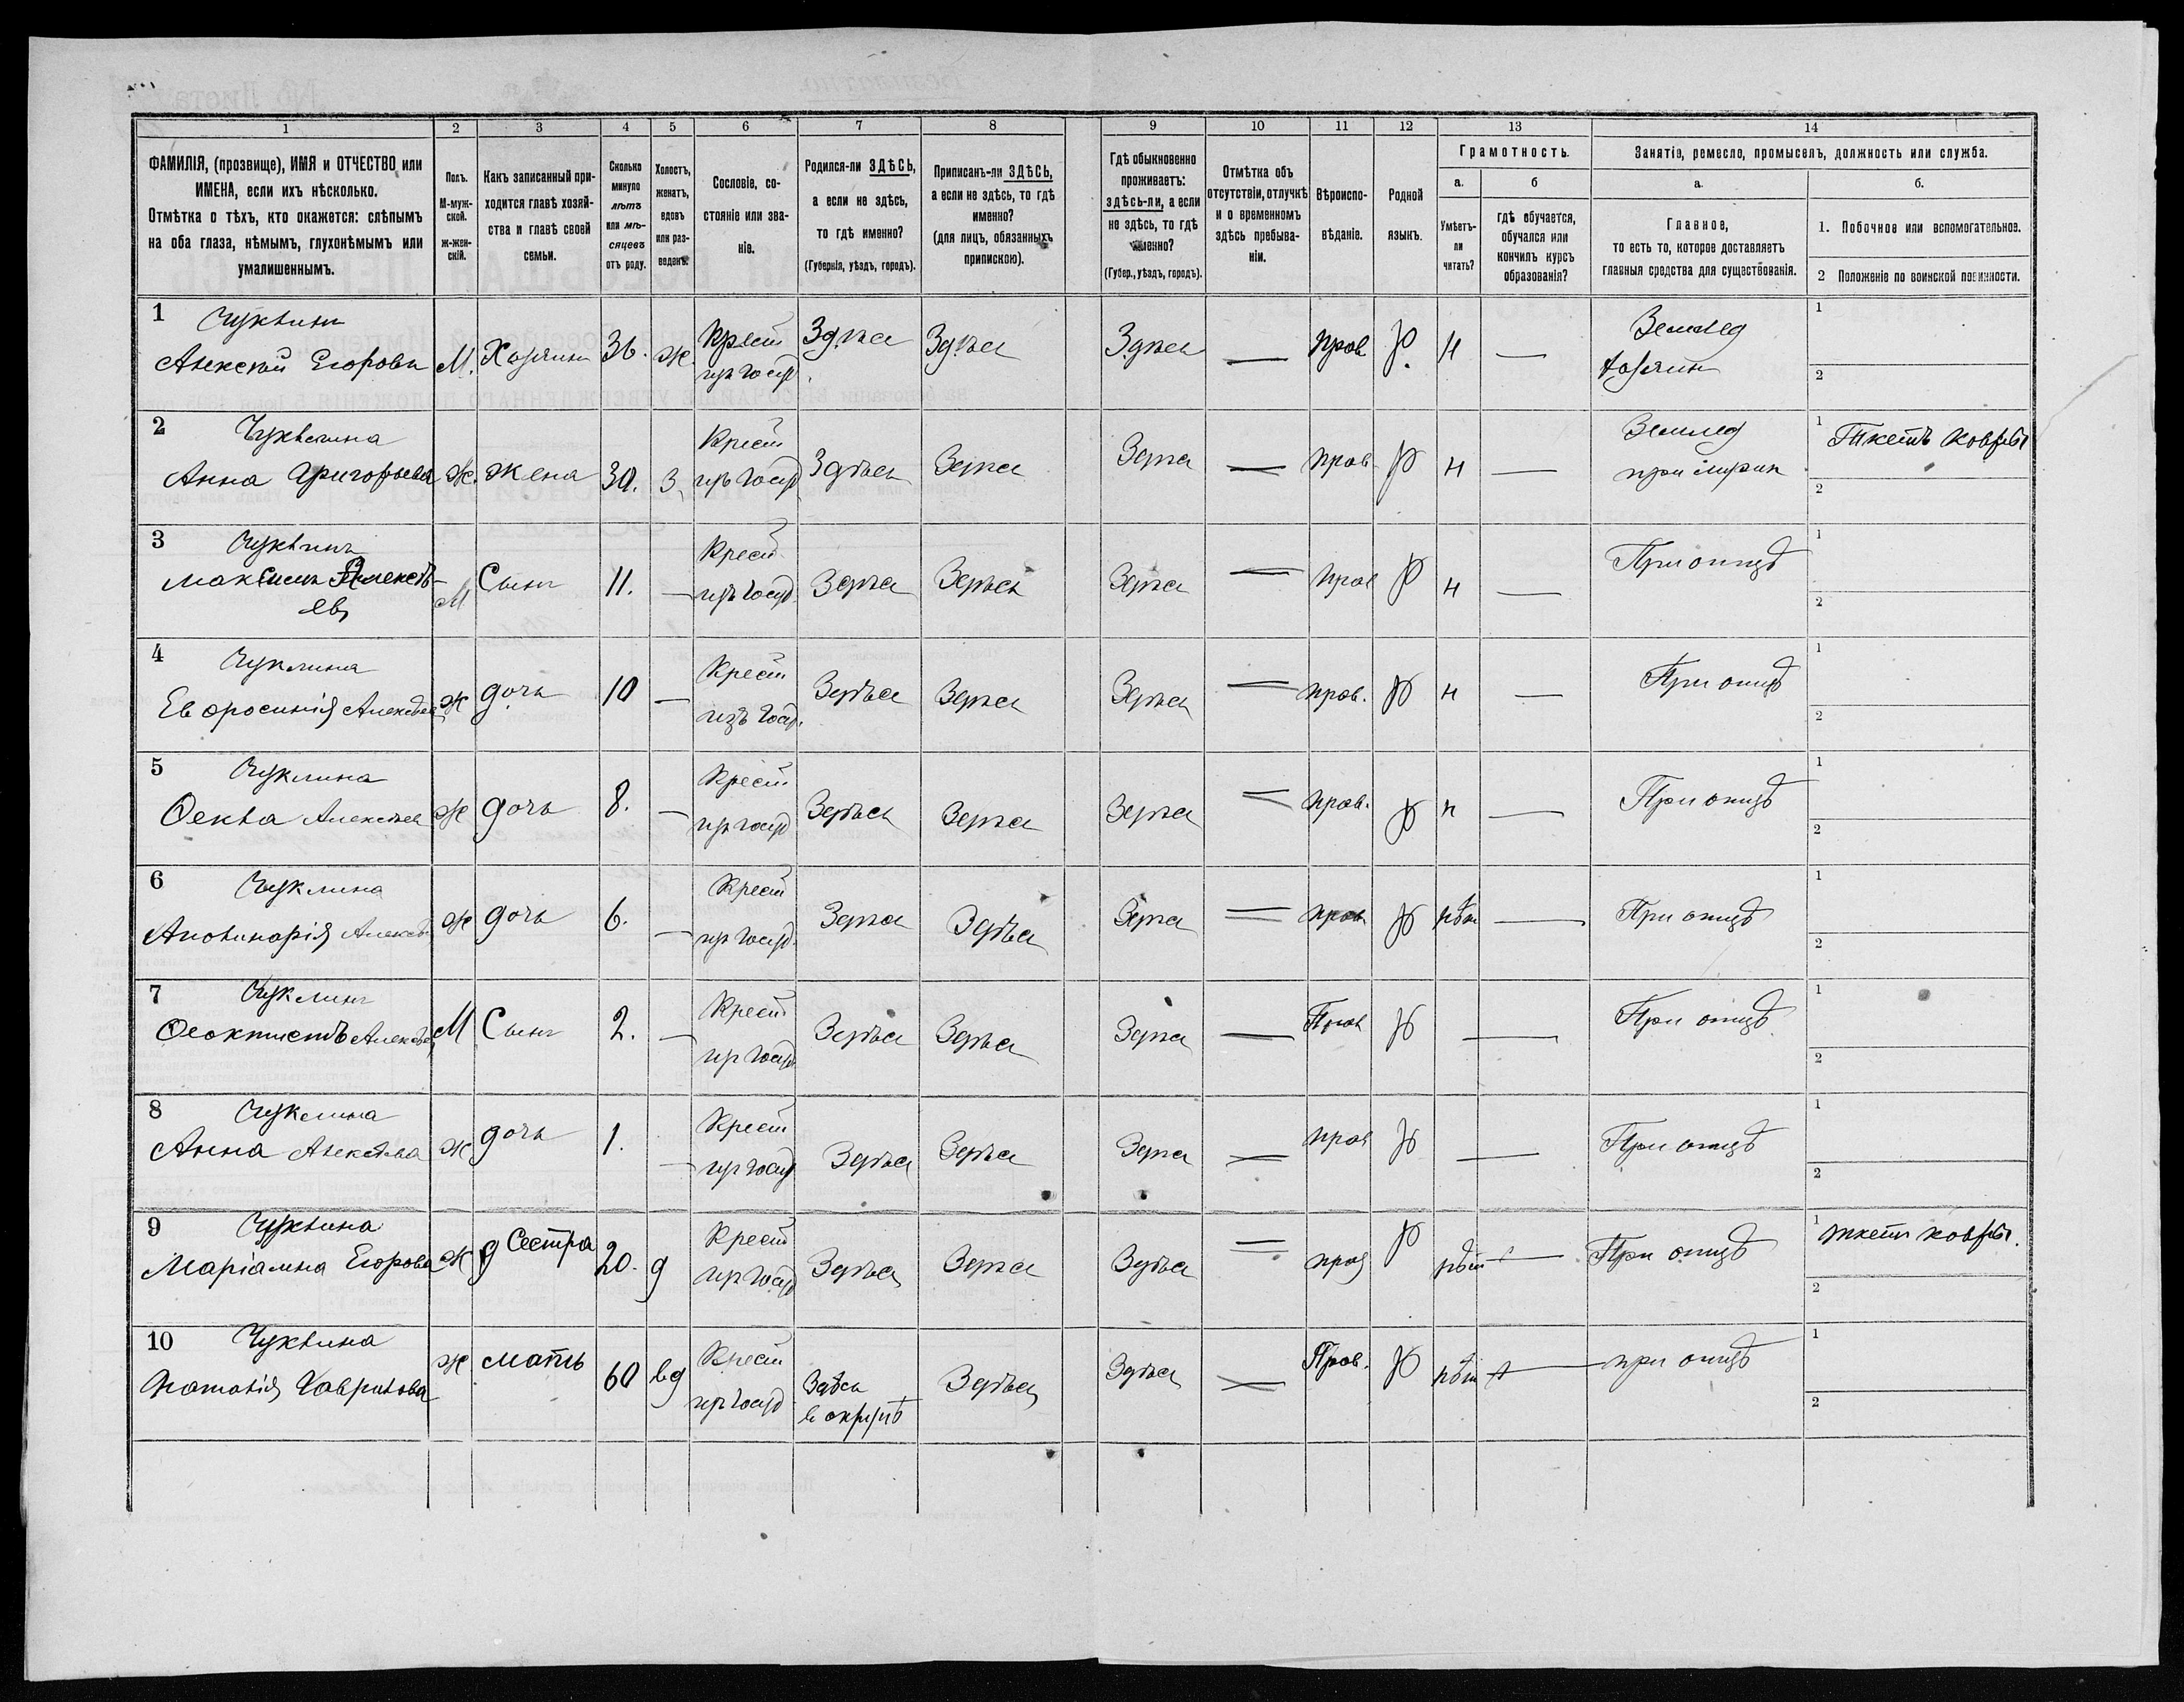 1 2 3 4 5 6 7 8 9 10 11 12 13 14
ФАМИЛІЯ, (прозвище), ИМЯ и ОТЧЕСТВО или
ИМЕНА, если ихъ нѣсколько.
Отмѣтка о тѣхъ, кто окажется: слѣпымъ
на оба глаза, нѣмымъ, глухонѣмымъ или
умалишеннымъ.
Полъ.
М-муж-
ской.
ж-жен-
скій.
Какъ записанный при-
ходится главѣ хозяй-
ства и главѣ своей
семьи.
Сколько
минуло
лѣтъ
или мѣ-
сяцевъ
отъ роду.
Холостъ,
женатъ,
вдовъ
или раз-
веденъ.
Сословіе, со-
стояніе или зва-
ніе.
Родился-ли ЗДѢСЬ,
а если не здѣсь,
то гдѣ именно?
(Губернія, уѣздъ, городъ).
Приписанъ-ли ЗДѢСЬ,
а если не здѣсь, то гдѣ
именно?
(для лицъ, обязанныхъ
припискою).
Гдѣ обыкновенно
проживаетъ:
здѣсь-ли, а если
не здѣсь, то гдѣ
именно?
(Губер., уѣздъ, городъ).
Отмѣтка объ
отсутствіи, отлучкѣ
и о временномъ
здѣсь пребыва-
ніи.
Вѣроиспо-
вѣданіе.
Родной
языкъ.
Грамотность.
а.
Умѣетъ-
ли
читать?
б
гдѣ обучается,
обучался или
кончилъ курсъ
образованія?
Занятіе, ремесло, промыселъ, должность или служба.
а.
Главное,
то есть то, которое доставляетъ
главныя средства для существованія.
б.
1. Побочное или вспомогательное.
2 Положеніе по воинской повинности.
1 Чуклинъ
Алексѣй Егоровъ М. Хозяинъ 36. ж. Крест
изъ госуд Здѣсь Здѣсь Здѣсь — прав Р. н — Землед
хозяин 1
2
2 Чуклина
Анна Григорьева Ж. жена 30. З. Крест
изъ госуд Здѣсь Здѣсь Здѣсь — прав Р н — Землед
при мужѣ 1 Ткетъ ковры
2
3 Чуклинъ
Максимъ Алексѣ-
евъ М Сынъ 11. — Крест
изъ госуд. Здѣсь Здѣсь Здѣсь — прав Р н — При отцѣ 1
2
4 Чуклина
Ев оросинія Алексѣев ж дочь 10 — Крест
изъ госуд. Здѣсь Здѣсь Здѣсь — прав. Р н — При отцѣ 1
2
5 Чуклина
Ѳекла Алексѣев ж дочь 8. — Крест
изъ госуд Здѣсь Здѣсь Здѣсь — прав. Р н — При отцѣ 1
2
6 Чуклина
Аполинарія Алексѣ ж дочь 6. — Крест
изъ госуд. Здѣсь Здѣсь Здѣсь — прав Р нѣт — При отцѣ 1
2
7 Чуклинъ
Ѳеоктистъ Алексѣев М Сынъ 2. — Крест
изъ госуд Здѣсь Здѣсь Здѣсь — Прав Р — При отцѣ 1
2
8 Чуклина
Анна Алексѣева ж дочь 1. — Крест
изъ госуд Здѣсь Здѣсь Здѣсь — прав Р — При отцѣ 1
2
9 Чуклина
Маріамна Егорова ж Сестра 20. д Крест
изъ госуд Здѣсь Здѣсь Здѣсь — прав Р нѣт — При отцѣ 1 ткетъ ковры.
2
10 Чуклина
Наталія Гаврилова ж мать 60 вд Крест
изъ госуд Здѣсь
в округѣ Здѣсь Здѣсь — Прав. Р нѣт — при отцѣ 1
2